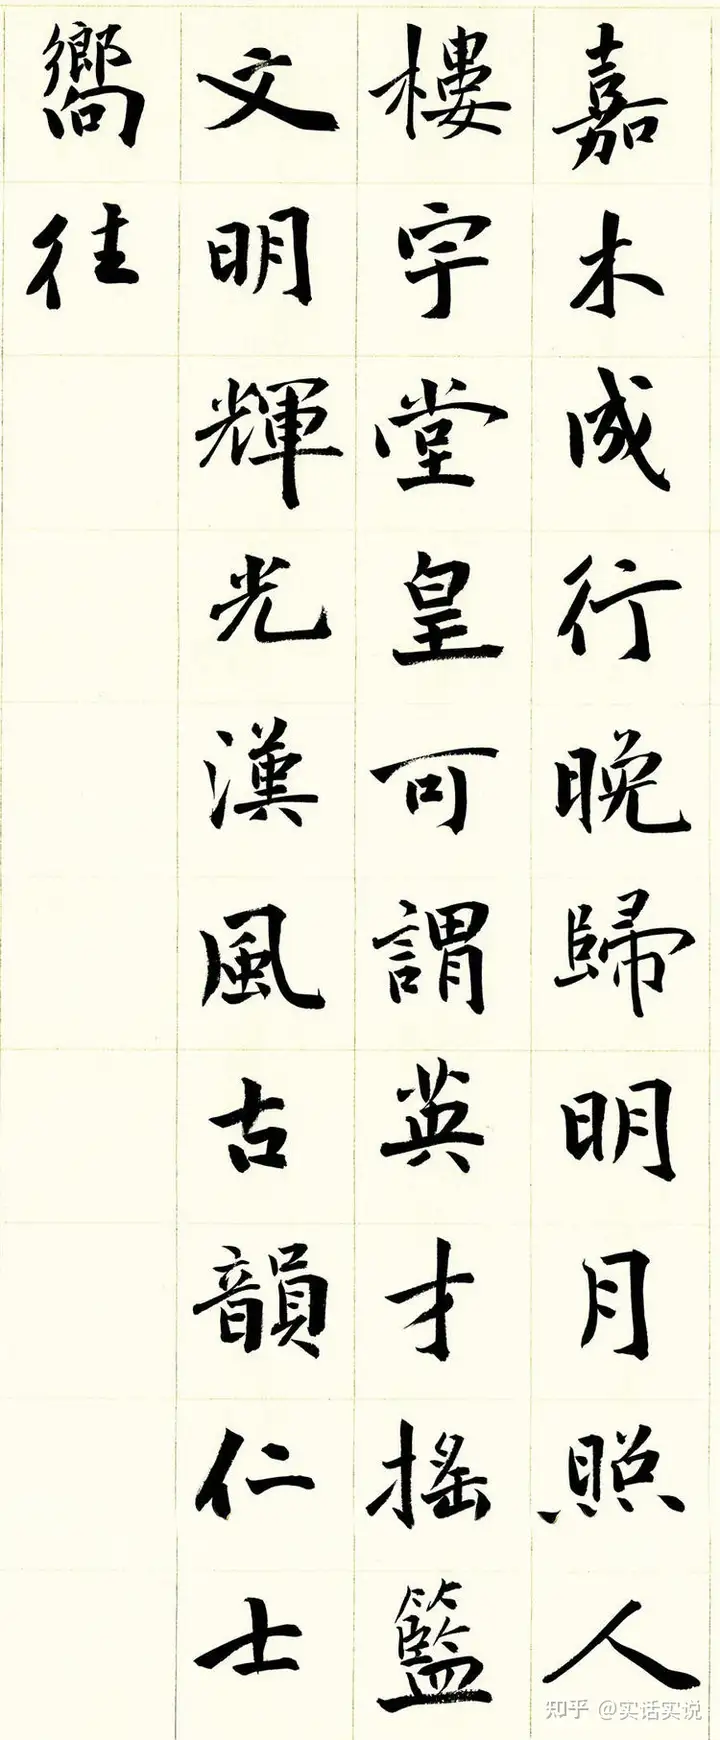 嘉木成行晚歸明月照人
樓宇堂皇可謂英才搖籃
文明輝光漢風古韻仁士
嚮往
知乎 @实话实说